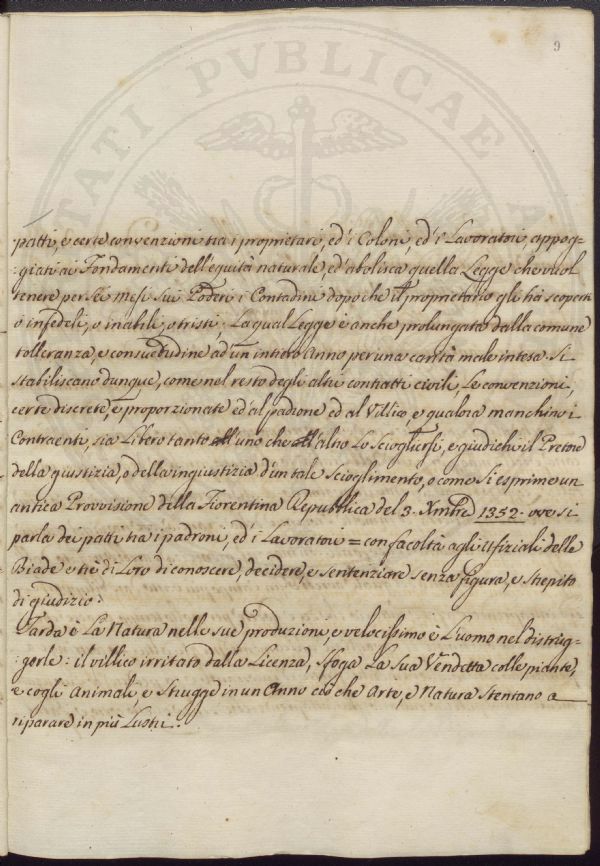 9
TATI PVBLICAE
patti, e certe convenzioni tra i proprietari, ed' i Coloni, ed' i Lavoratori, appog=
=giati ai Fondamenti dell'equità naturale, ed' abolisca quella Legge che vuol
tenere per sei mesi sui Poderi i Contadini dopo che il proprietario gli ha scoperti
o infedeli, o inabili, o tristi; La qual Legge è anche prolungata dalla comune
tolleranza, e consuetudine ad' un intiero Anno per una carità male intesa. Si
stabiliscano dunque, come nel resto degli altri contratti civili, Le convenzioni,
certe discrete, e proporzionate ed' al padrone ed al Villico, e qualora manchino i
Contraenti, sia Libero tanto all'uno che all'altro Lo Sciogliersi, e giudichi il Pretore
della giustizia, o della ingiustizia d'un tale Scioglimento, o come si esprime un
antica Provvisione della Fiorentina Repubblica del 3. Xmbre 1352. ove si
parla dei patti tra i padroni, ed' i Lavoratori = con facoltà agli Ufiziali delle
Biade e tre di Loro di conoscere, decidere, e sentenziare senza figura, e strepito
di giudizio:
Tarda è La Natura nelle sue produzioni, e velocissimo è L'uomo nel distrug=
gerle: il villico irritato dalla Licenza, sfoga La sua Vendetta colle piante,
e cogli Animali, e Strugge in un Anno ciò che Arte, e Natura Stentano a
riparare in più Lustri.